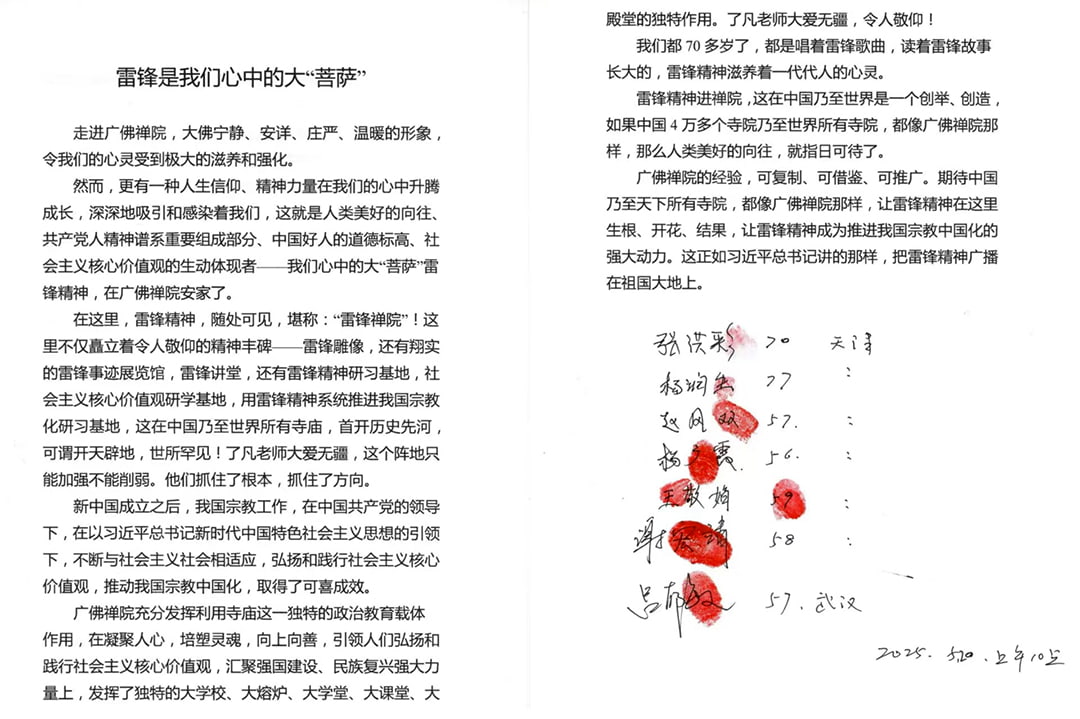 雷锋是我们心中的大“菩萨”
走进广佛禅院，大佛宁静、安详、庄严、温暖的形象，
令我们的心灵受到极大的滋养和强化。
然而，更有一种人生信仰、精神力量在我们的心中升腾
成长，深深地吸引和感染着我们，这就是人类美好的向往、
共产党人精神谱系重要组成部分、中国好人的道德标高、社
会主义核心价值观的生动体现者——我们心中的大“菩萨”雷
锋精神，在广佛禅院安家了。
在这里，雷锋精神，随处可见，堪称：“雷锋禅院”！这
里不仅矗立着令人敬仰的精神丰碑——雷锋雕像，还有翔实
的雷锋事迹展览馆，雷锋讲堂，还有雷锋精神研习基地，社
会主义核心价值观研学基地，用雷锋精神系统推进我国宗教
化研习基地，这在中国乃至世界所有寺庙，首开历史先河，
可谓开天辟地，世所罕见！了凡老师大爱无疆，这个阵地只
能加强不能削弱。他们抓住了根本，抓住了方向。
新中国成立之后，我国宗教工作，在中国共产党的领导
下，在以习近平总书记新时代中国特色社会主义思想的引领
下，不断与社会主义社会相适应，弘扬和践行社会主义核心
价值观，推动我国宗教中国化，取得了可喜成效。
广佛禅院充分发挥利用寺庙这一独特的政治教育载体
作用，在凝聚人心，培塑灵魂，向上向善，引领人们弘扬和
践行社会主义核心价值观，汇聚强国建设、民族复兴强大力
量上，发挥了独特的大学校、大熔炉、大学堂、大课堂、大
殿堂的独特作用。了凡老师大爱无疆，令人敬仰！
我们都 70 多岁了，都是唱着雷锋歌曲，读着雷锋故事
长大的，雷锋精神滋养着一代代人的心灵。
雷锋精神进禅院，这在中国乃至世界是一个创举、创造，
如果中国 4 万多个寺院乃至世界所有寺院，都像广佛禅院那
样，那么人类美好的向往，就指日可待了。
广佛禅院的经验，可复制、可借鉴、可推广。期待中国
乃至天下所有寺院，都像广佛禅院那样，让雷锋精神在这里
生根、开花、结果，让雷锋精神成为推进我国宗教中国化的
强大动力。这正如习近平总书记讲的那样，把雷锋精神广播
在祖国大地上。
张洪彩 70 天津
杨润生 77 :
赵凤双 57. :
杨 霞 56. :
王敬娟 59 :
谢 靖 58 :
吕郁敏 57. 武汉
2025. 520. 上午10点